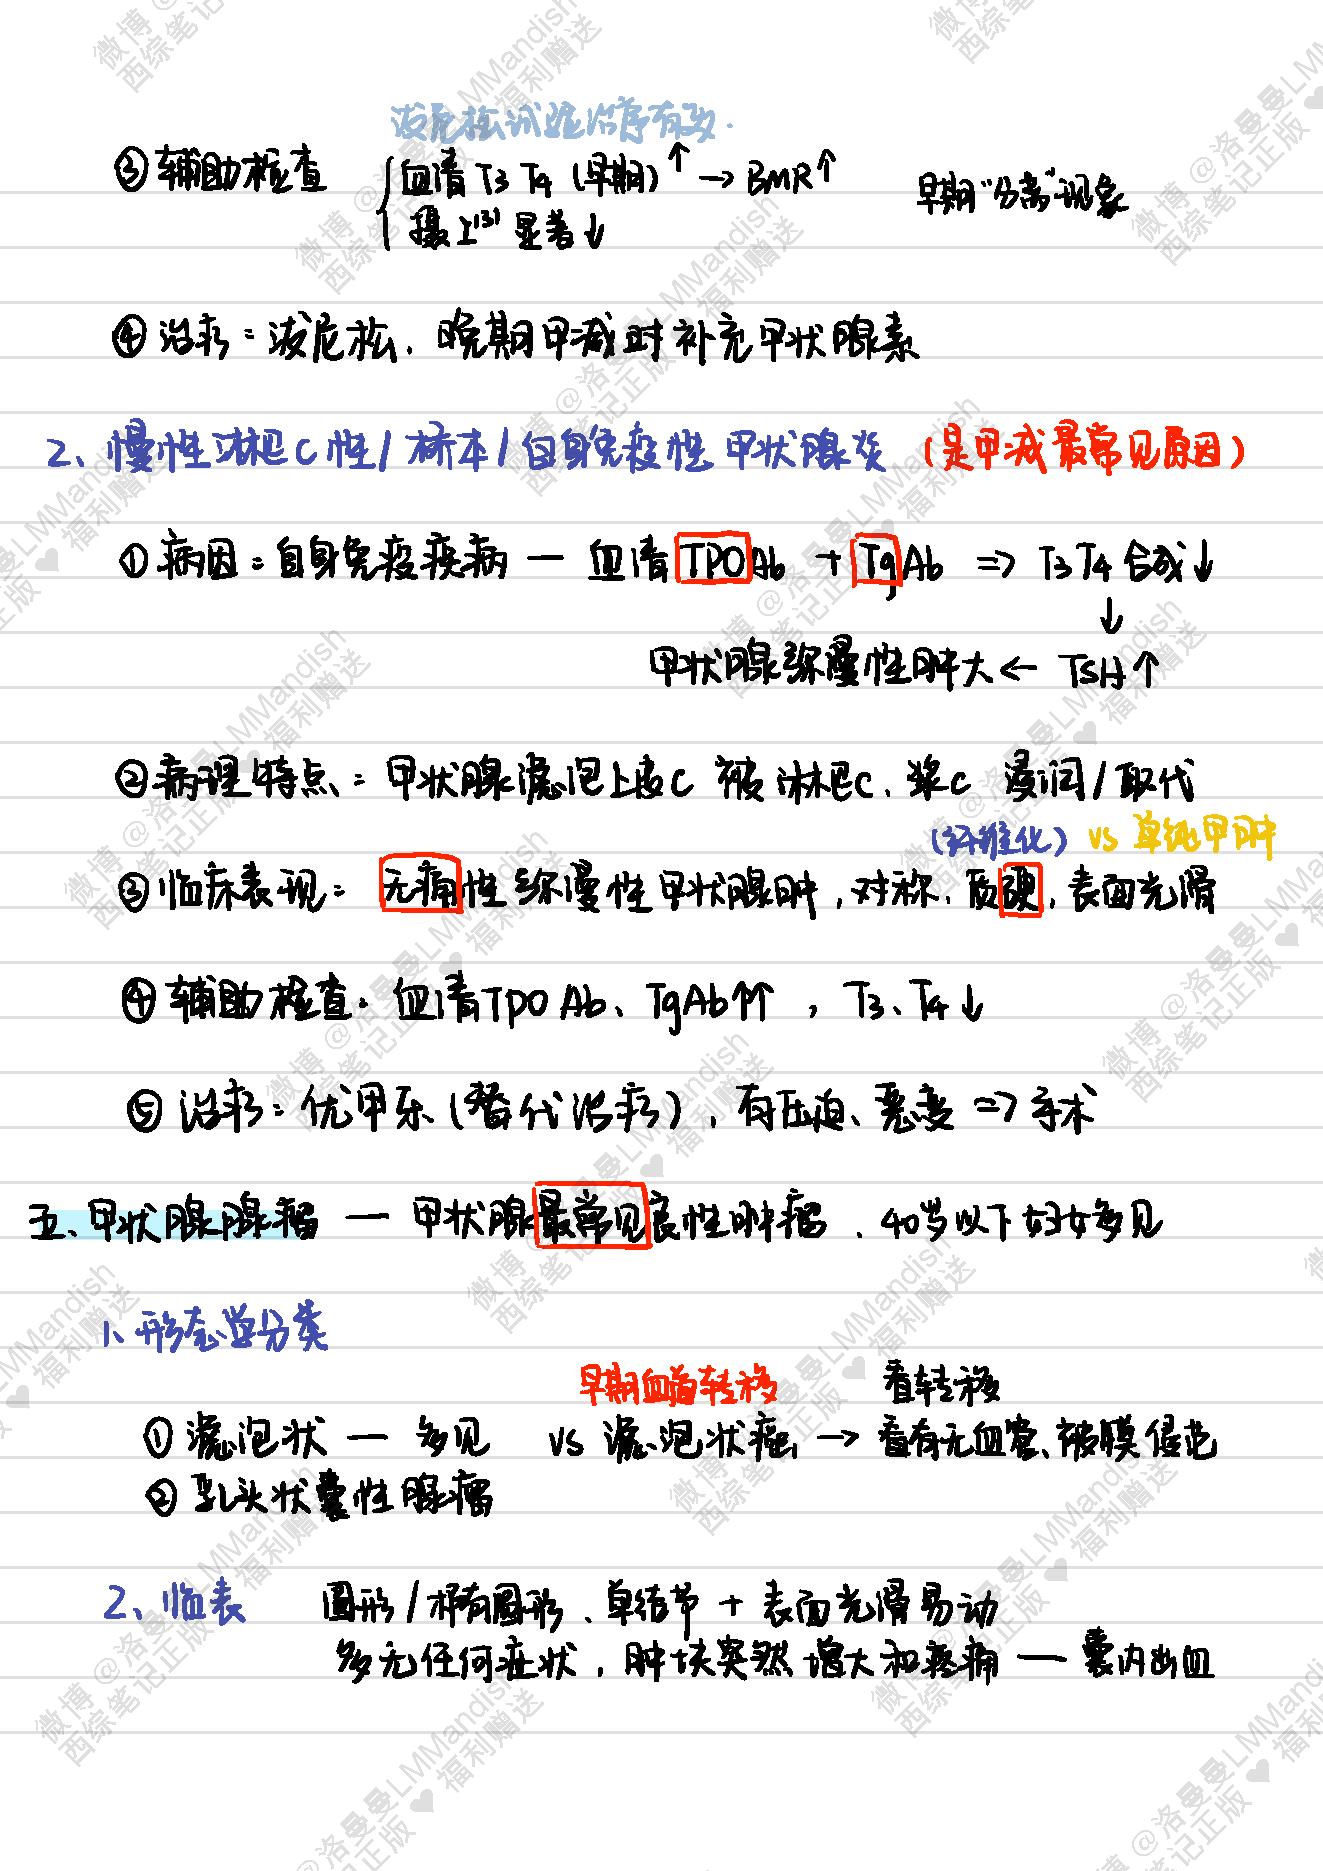 泼尼松试验治疗有效.
③辅助检查 { 血清 T3 T4 (早期)↑ → BMR↑ 早期"分离"现象
摄I¹³¹ 显著↓
④治疗: 泼尼松、晚期甲减时补充甲状腺素
2、慢性淋巴C性/桥本/自身免疫性甲状腺炎 (是甲减最常见原因)
①病因: 自身免疫疾病 — 血清TPOAb + TgAb => T3 T4 合成↓
↓
甲状腺弥漫性肿大 ← TSH↑
②病理特点: 甲状腺滤泡上皮C 被淋巴C、浆C 浸润/取代
(纤维化) vs 单纯甲肿
③临床表现: 无痛性弥漫性甲状腺肿, 对称、质硬, 表面光滑
④辅助检查: 血清TPOAb、TgAb↑↑, T3、T4↓
⑤治疗: 优甲乐(替代治疗), 有压迫、恶变 => 手术
五、甲状腺腺瘤 — 甲状腺最常见良性肿瘤、40岁以下妇女多见
1、形态学分类
早期血道转移 看转移
①滤泡状 — 多见 vs 滤泡状癌 → 看有无血管、被膜侵犯
②乳头状囊性腺瘤
2、临表 圆形/椭圆形、单结节 + 表面光滑易动
多无任何症状, 肿块突然增大和疼痛 — 囊内出血
微博@洛曼曼LMMandish
西综笔记正版♥福利赠送